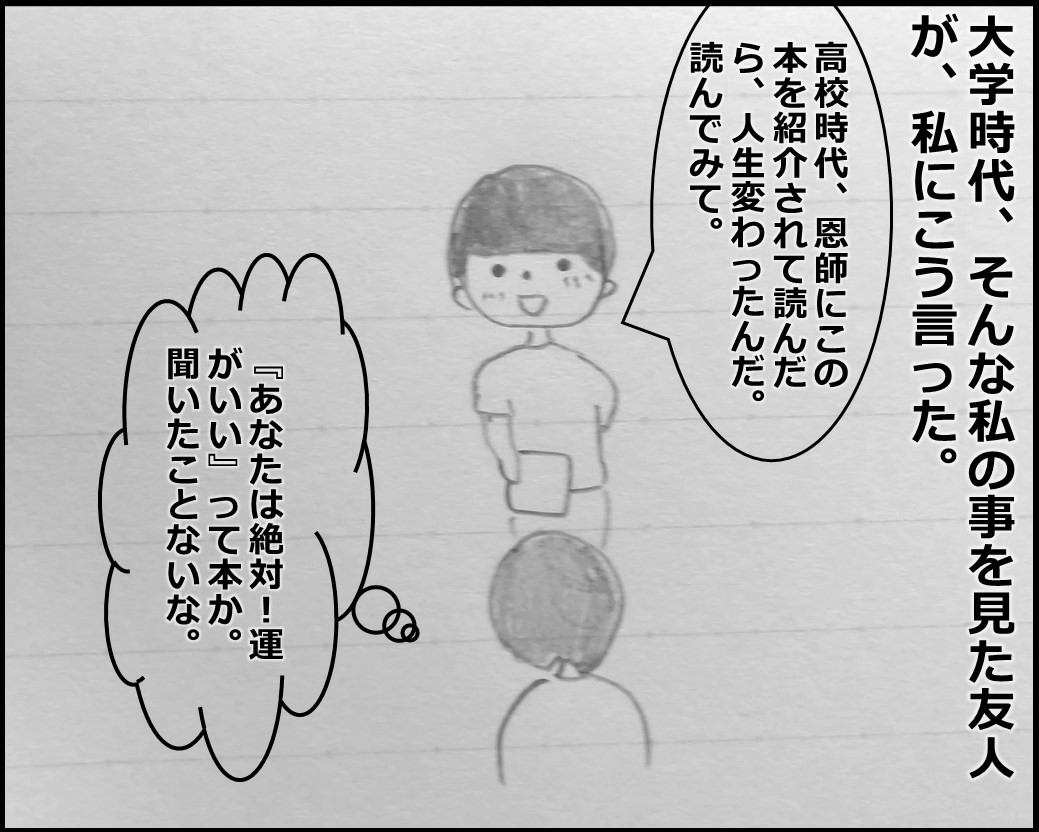 大学時代、そんな私の事を見た友人
が、私にこう言った。
高校時代、恩師にこの
本を紹介されて読んだ
ら、人生変わったんだ。
読んでみて。
『あなたは絶対！運
がいい』って本か。
聞いたことないな。